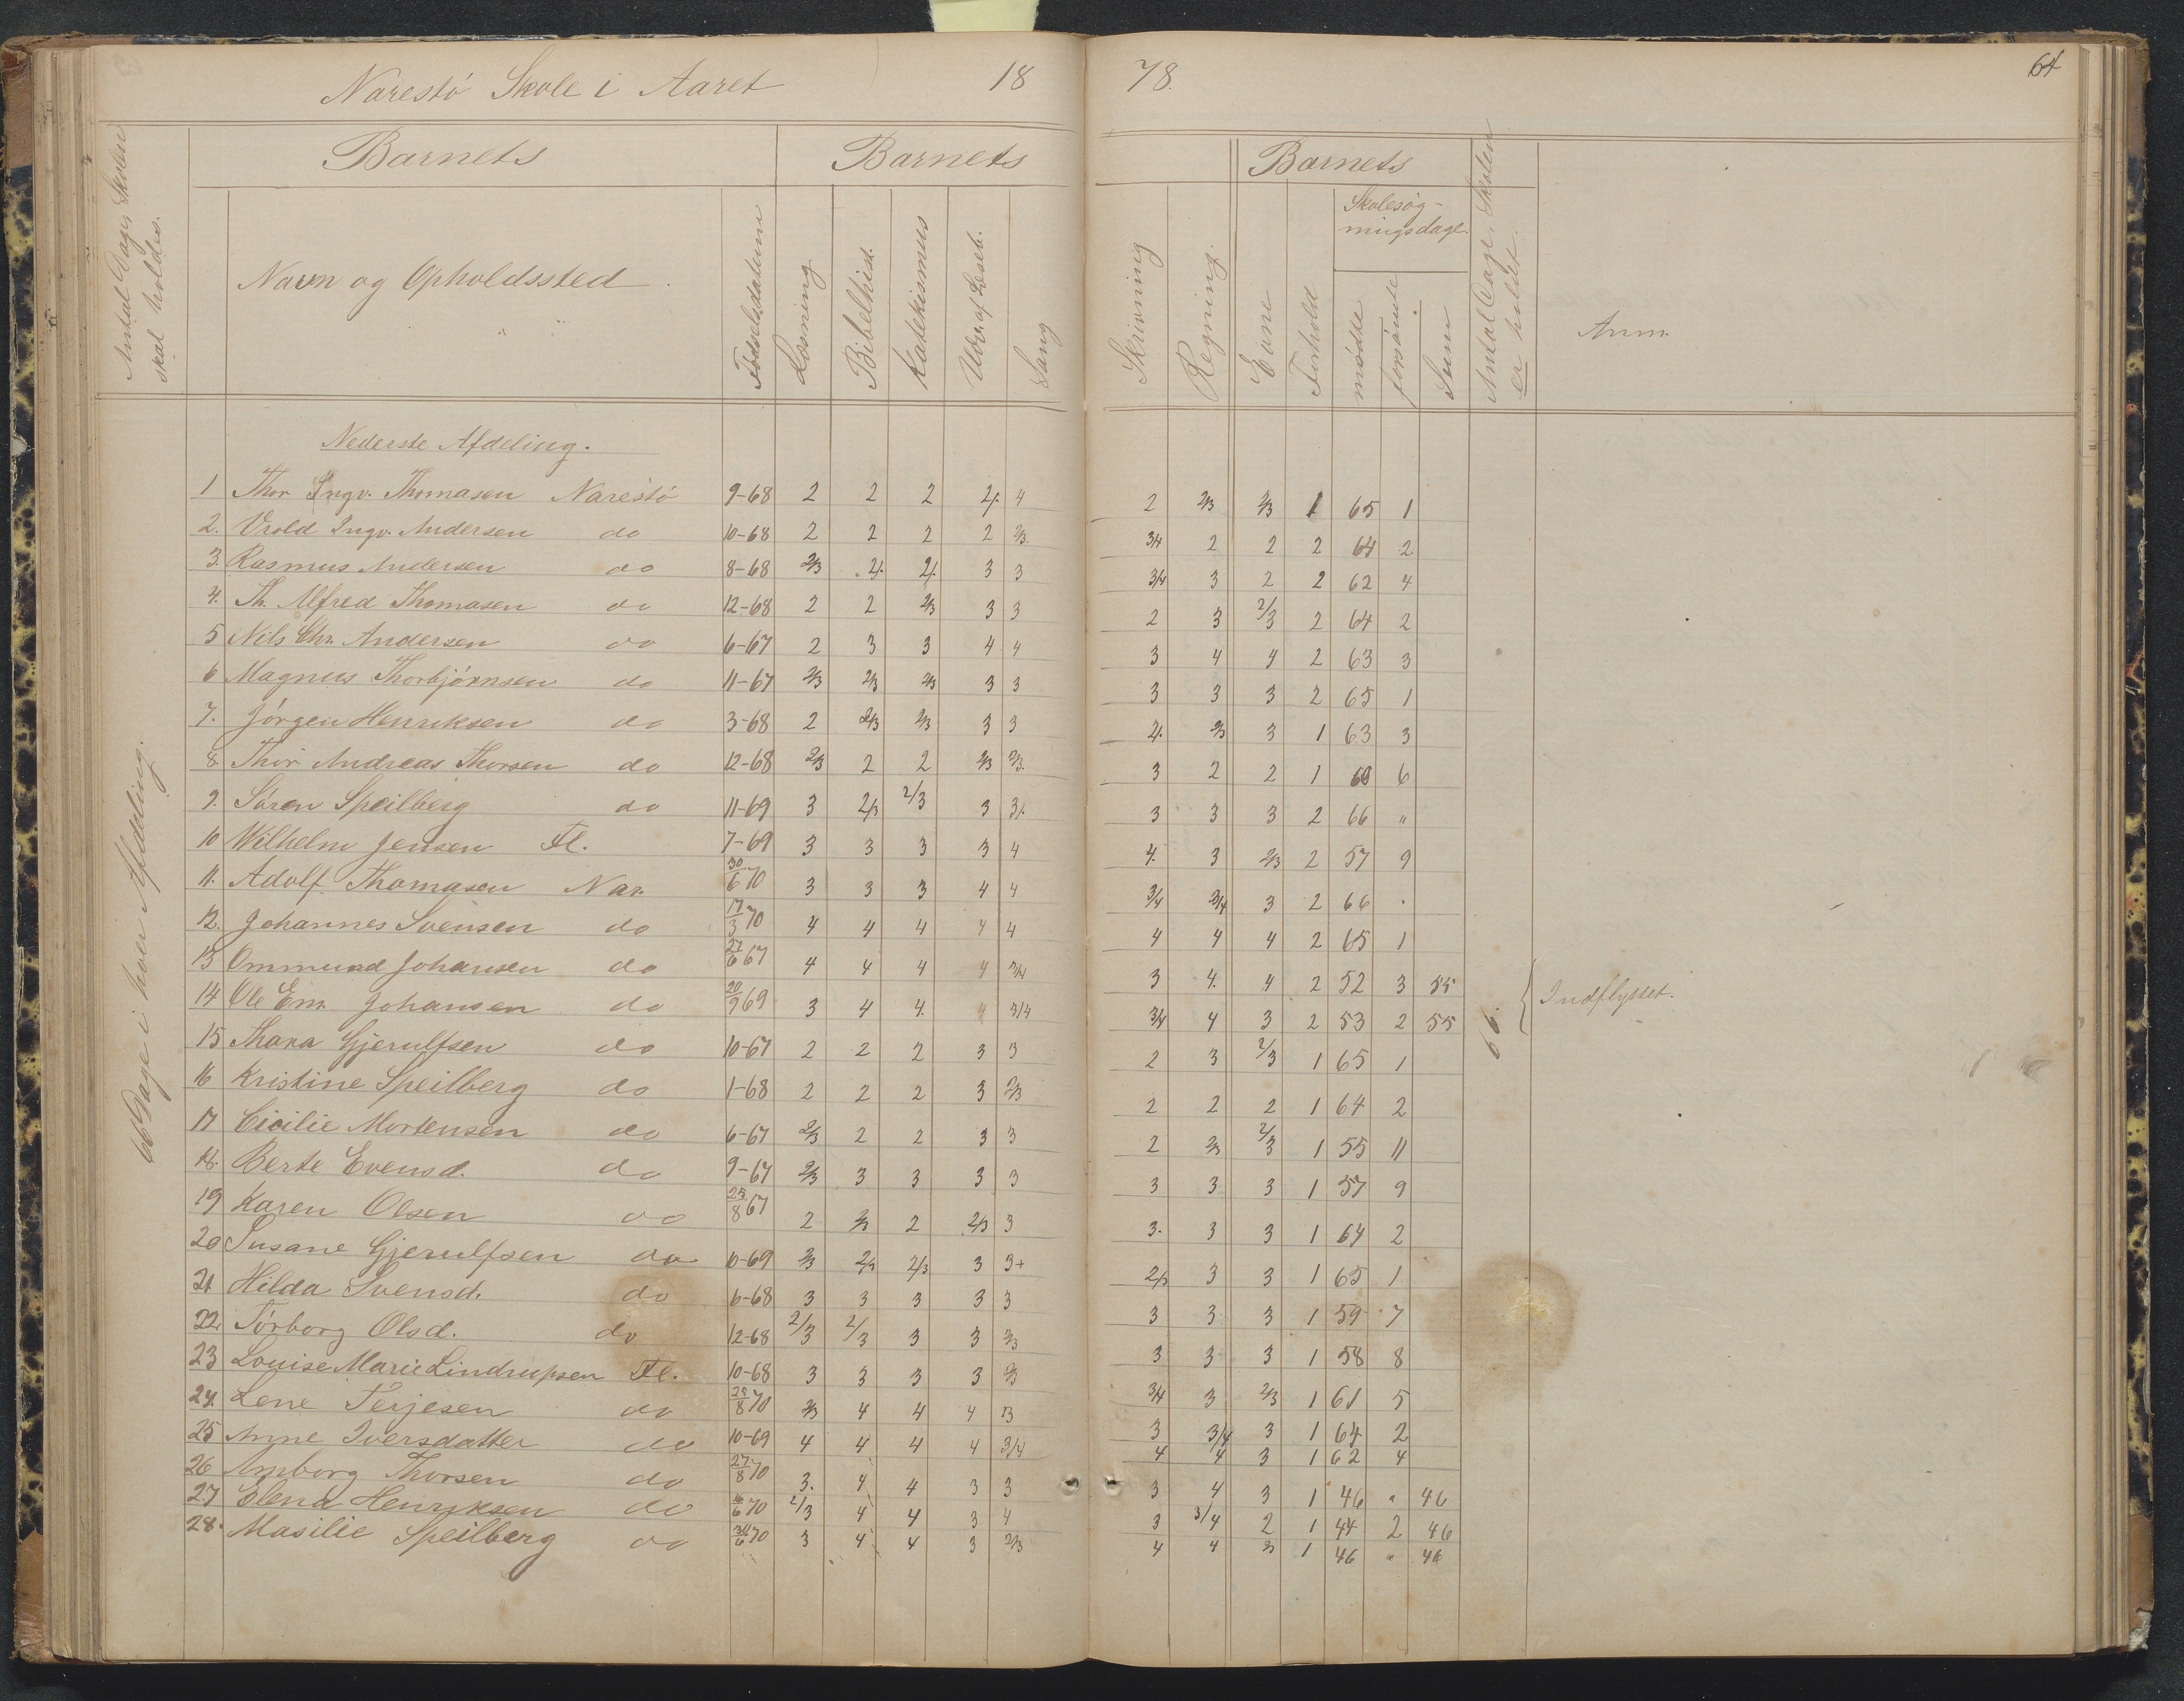 Narestö Skole i Aaret 1878.
64
Antal Dage Skolen skal holdes.
Barnets
Barnets
Barnets
Navn og Opholdssted
Fødselsdatum
Læsning
Bibelhist.
Katekismus
Udv. af Læseb.
Sang
Skrivning
Regning.
Evne
Forhold
Skolesøg-
ningsdage.
mødte
forsömte
Sum
Antal Dage Skolen er holdt.
Anm.
66 Dage i hver Afdeling.
Nederste Afdeling.
1 Thor Ingv. Thomasen Narestö 9-68 2 2 2 2/. 4 2 2/3 2/3 1 65 1
2. Vrold Ingv. Andersen do 10-68 2 2 2 2 2/3. 3/4 2 2 2 64 2
3. Rasmus Andersen do 8-68 2/3 2/. 2/. 3 3 3/4 3 2 2 62 4
4. Th. Alfred Thomasen do 12-68 2 2 2/3 3 3 2 3 2/3 2 64 2
5 Nils Chr. Andersen do 6-67 2 3 3 4 4 3 4 4 2 63 3
6 Magnus Thorbjörnsen do 11-67 2/3 2/3 2/3 3 3 3 3 3 2 65 1
7. Jörgen Henriksen do 3-68 2 2/3 2/3 3 3 2/. 2/3 3 1 63 3
8. Thor Andreas Thorsen do 12-68 2/3 2 2 2/3 2/3. 3 2 2 1 60 6
9. Sören Speilberg do 11-69 3 2/3 2/3 3 3/. 3 3 3 2 66 "
10 Wilhelm Jensen Fl. 7-69 3 3 3 3 4 4. 3 2/3 2 57 9
11. Adolf Thomasen Nar. 30/6 70 3 3 3 4 4 3/4 3/4 3 2 66 .
12. Johannes Svensen do 17/3 70 4 4 4 4 4 4 4 4 2 65 1
13 Ommund Johansen do 27/6 67 4 4 4 4 3/4 3 4. 4 2 52 3 55
14 Ole Em. Johansen do 20/9 69 3 4 4. 4 3/4 3/4 4 3 2 53 2 55
66.
Indflyttet.
15 Thara Gjerulfsen do 10-67 2 2 2 3 3 2 3 2/3 1 65 1
16 Kristine Speilberg do 1-68 2 2 2 3 2/3 2 2 2 1 64 2
17 Cicilie Mortensen do 6-67 2/3 2 2 3 3 2 2/3 2/3 1 55 11
18. Berte Evensd. do 9-67 2/3 3 3 3 3 3 3 3 1 57 9
19 Karen Olsen do 25/8 67 2 2/3 2 2/3 3 3. 3 3 1 64 2
20 Susane Gjerulfsen do 10-69 2/3 2/3 2/3 3 3+ 2/3 3 3 1 65 1
21 Hilda Svensd. do 6-68 3 3 3 3 3 3 3 3 1 59 7
22. Törborg Olsd. do 12-68 2/3 2/3 3 3 2/3 3 3 3 1 58 8
23 Louise Marie Lindrupsen Fl. 10-68 3 3 3 3 2/3 3/4 3 2/3 1 61 5
24. Lene Terjesen do 28/8 70 2/3 4 4 4 3 3 3/4 3 1 64 2
25 Anne Iversdatter do 10-69 4 4 4 4 3/4 4 4 3 1 62 4
26 Amborg Thorsen do 27/8 70 3. 4 4 3 3 3 4 3 1 46 " 46
27 Elena Henriksen do 6/6 70 2/3 4 4 3 4 3 3/4 2 1 44 2 46
28. Masilie Speilberg do 30/6 70 3 4 4 3 2/3 4 4 2/3 1 46 " 46